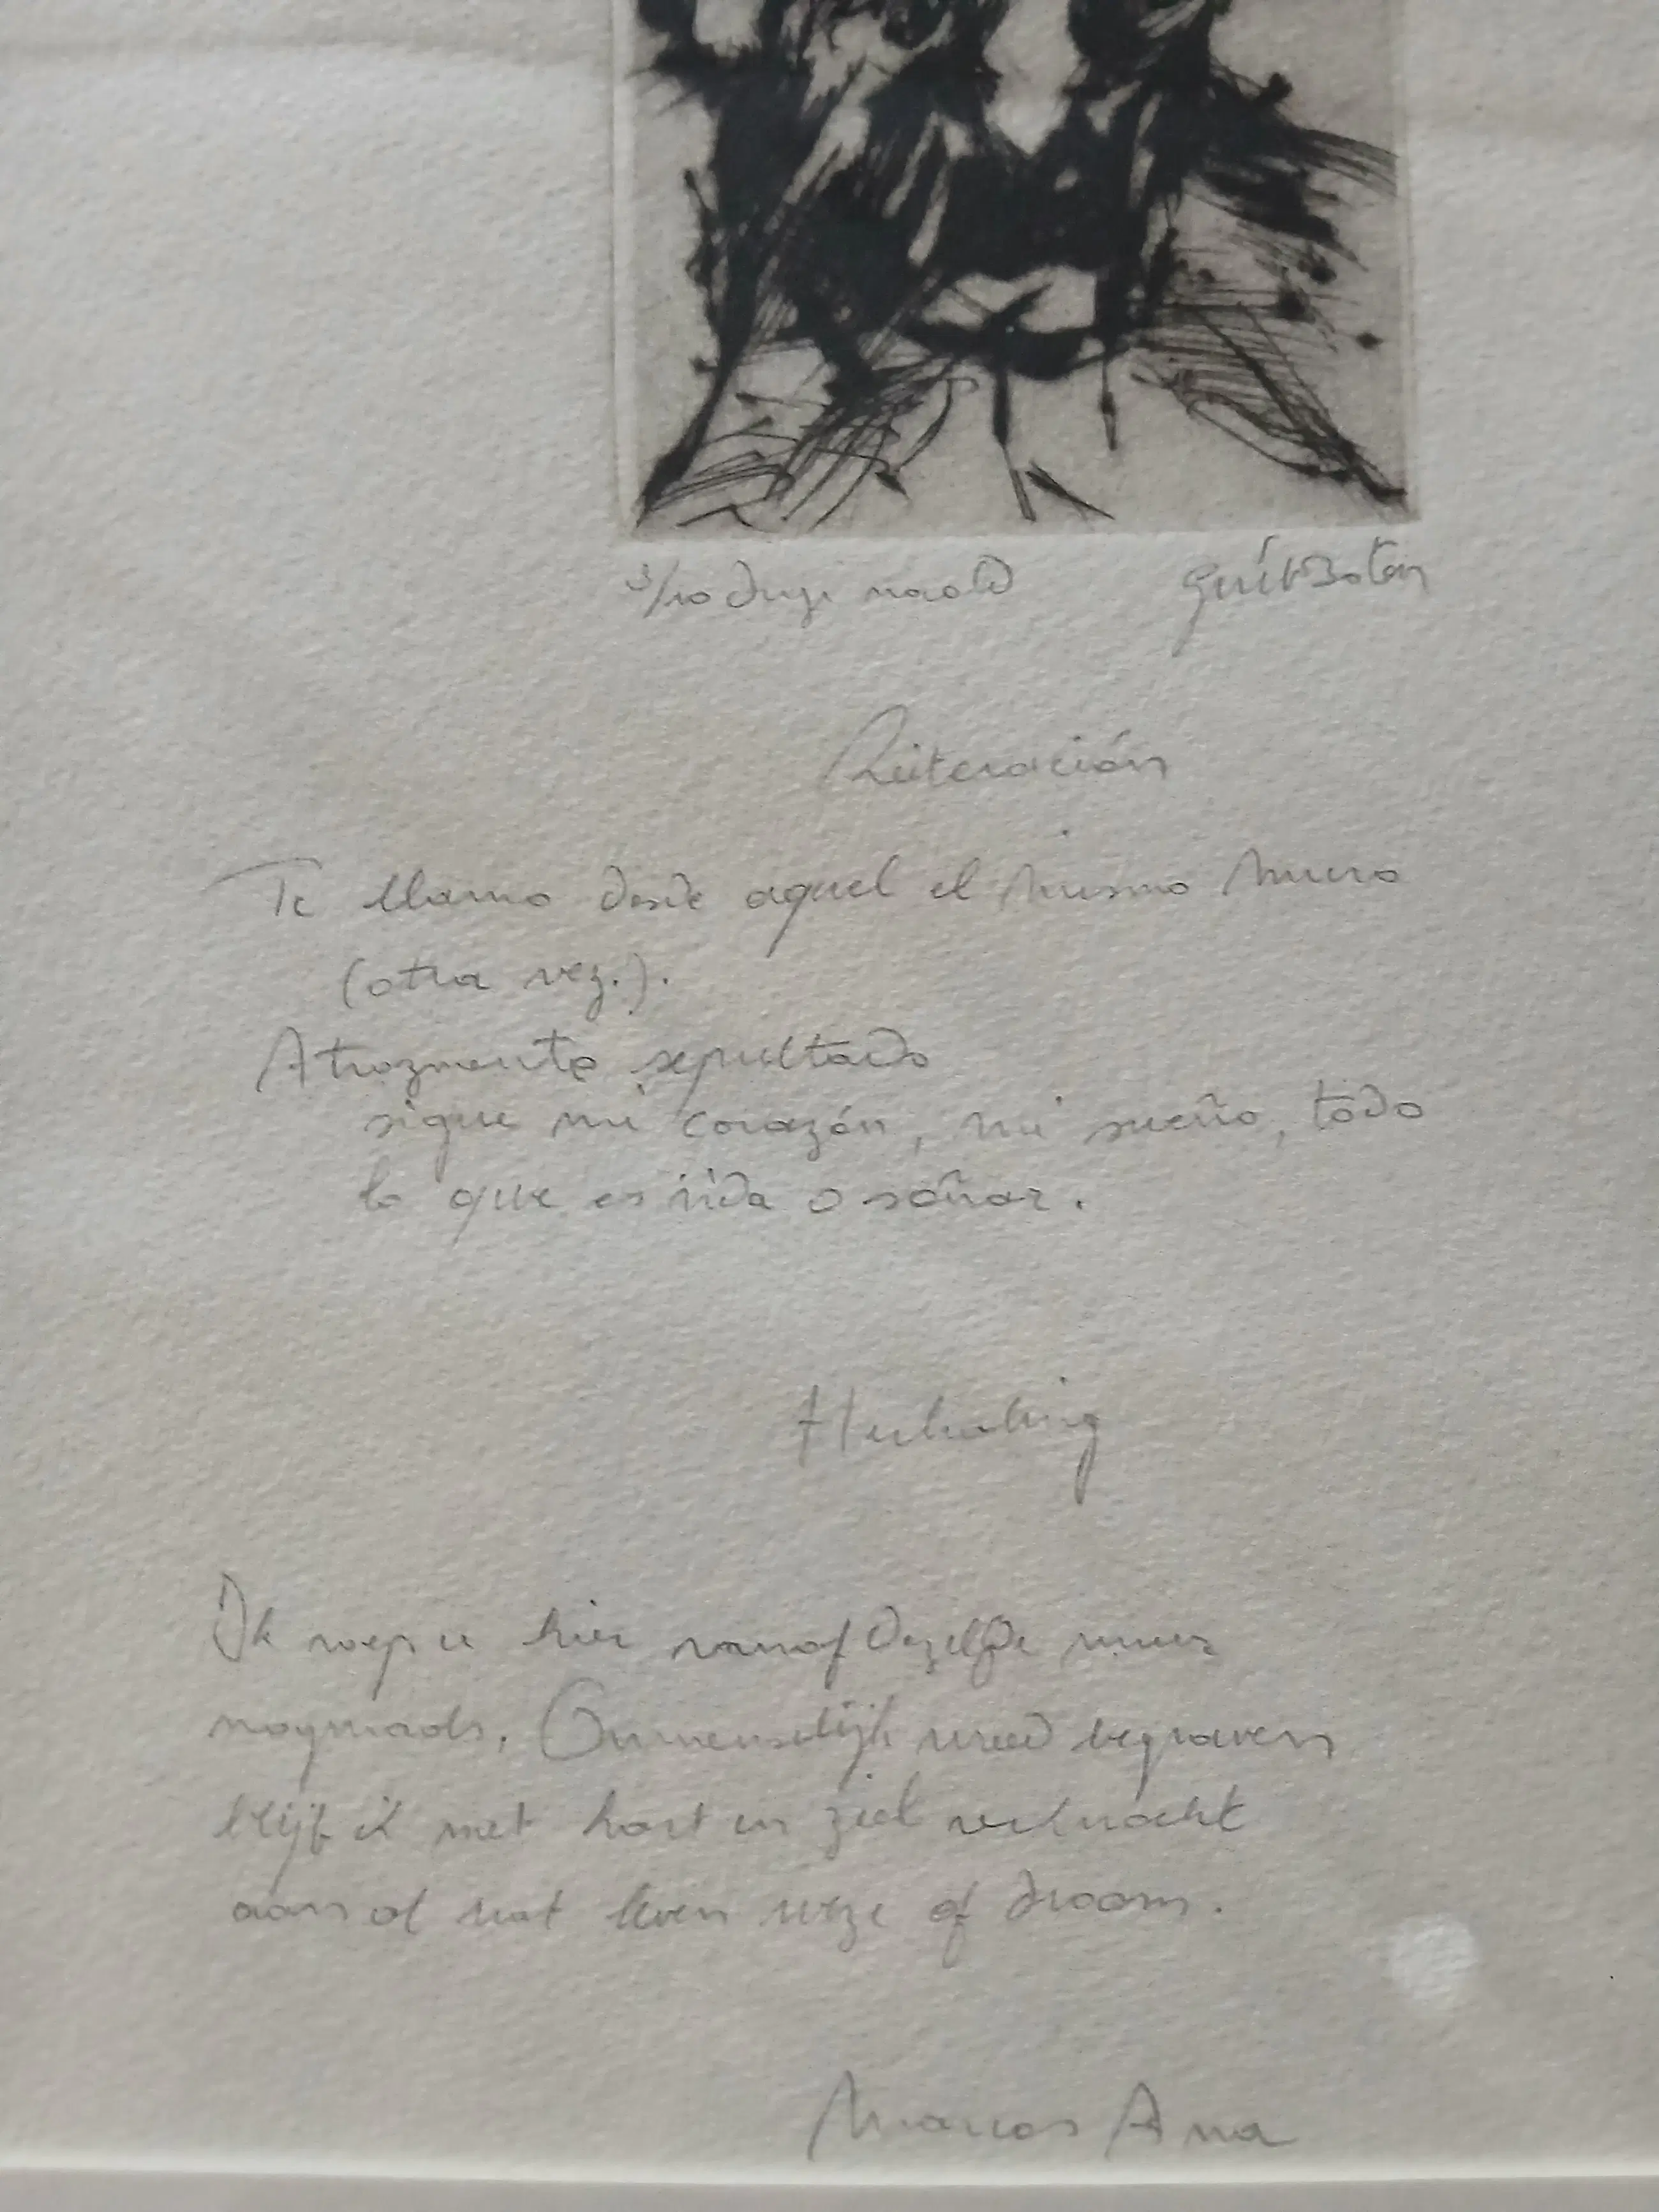 3/10 droge naald
Reiteración
Te llamo desde aquel el mismo muro
(otra vez.).
Atrozmente sepultado
sigue mi corazón, mi sueño, todo
lo que es vida o soñar.
Herhaling
Ik roep u hier vanaf dezelfde muur
nogmaals. Onmenselijk wreed begraven
blijf ik met hart en ziel verknocht
aan al wat leven weze of droom.
Marcos Ana